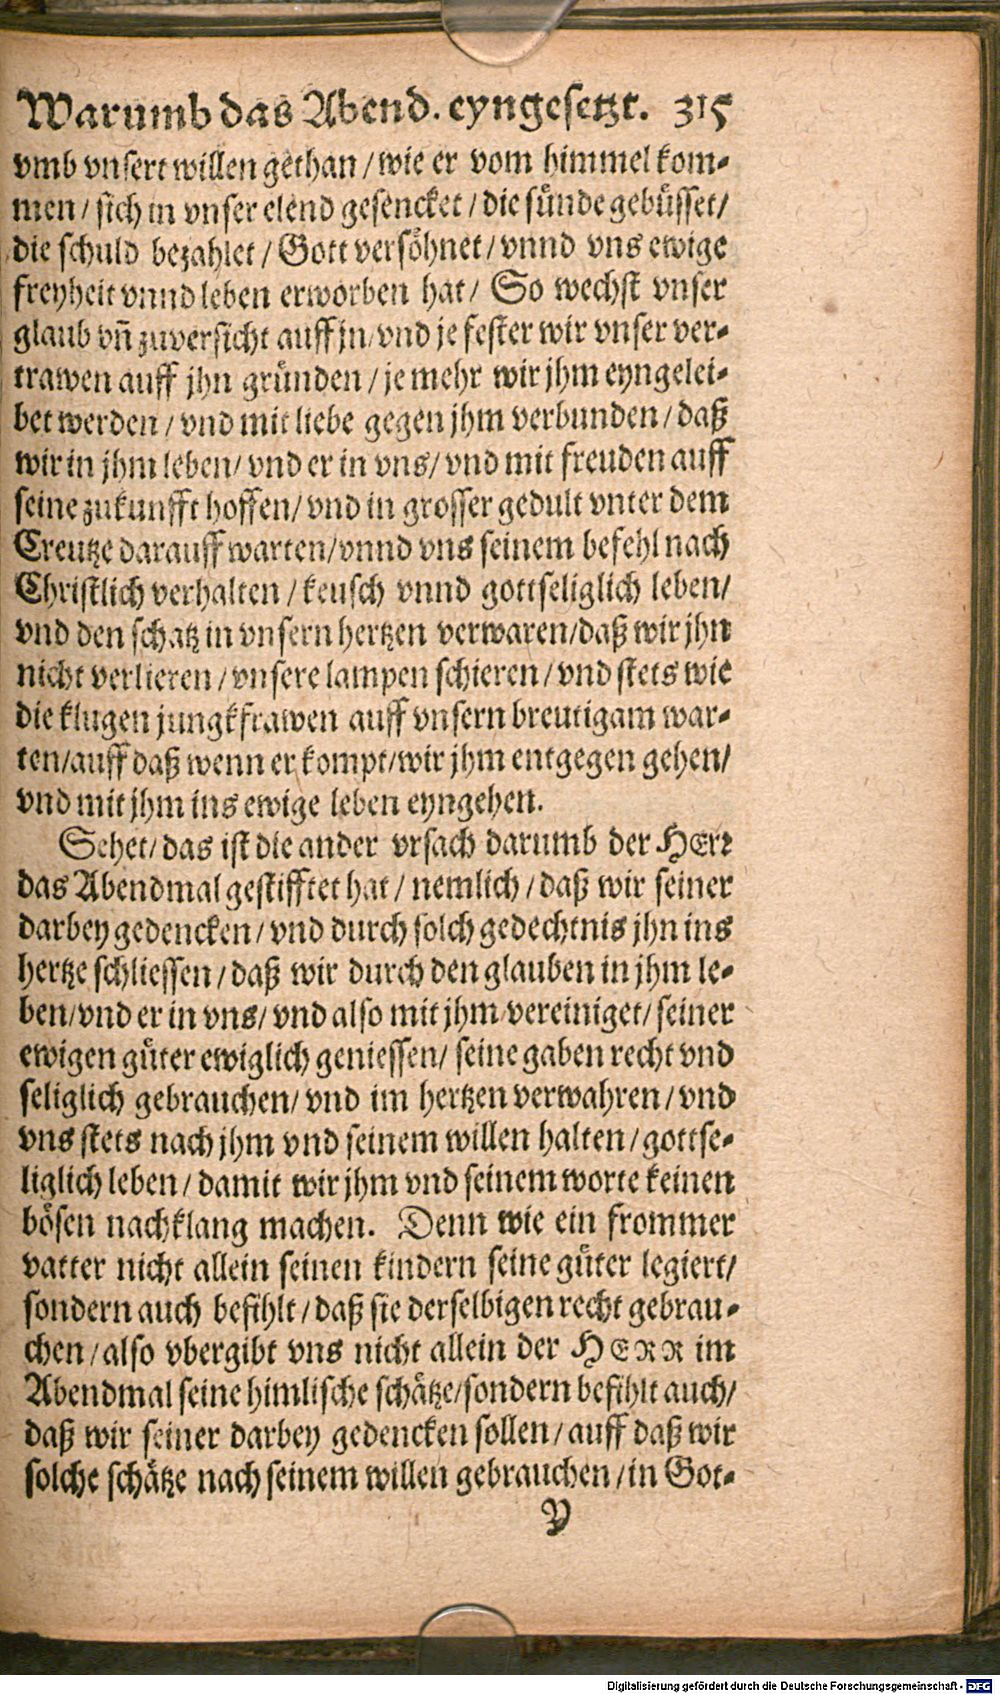 Warumb das Abend. eyngesetzt. 315
vmb vnsert willen gethan / wie er vom himmel kom-
men / sich in vnser elend gesencket / die sünde gebüsset /
die schuld bezahlet / Gott versöhnet / vnnd vns ewige
freyheit vnnd leben erworben hat / So wechst vnser
glaub vñ zuversicht auff jn / vnd je fester wir vnser ver-
trawen auff jhn gründen / je mehr wir jhm eyngelei-
bet werden / vnd mit liebe gegen jhm verbunden / daß
wir in jhm leben / vnd er in vns / vnd mit freuden auff
seine zukunfft hoffen / vnd in grosser gedult vnter dem
Creutze darauff warten / vnnd vns seinem befehl nach
Christlich verhalten / keusch vnnd gottseliglich leben /
vnd den schatz in vnsern hertzen verwaren / daß wir jhn
nicht verlieren / vnsere lampen schieren / vnd stets wie
die klugen jungkfrawen auff vnsern breutigam war-
ten / auff daß wenn er kompt / wir jhm entgegen gehen /
vnd mit jhm ins ewige leben eyngehen.
Sehet / das ist die ander vrsach darumb der HErr
das Abendmal gestifftet hat / nemlich / daß wir seiner
darbey gedencken / vnd durch solch gedechtnis jhn ins
hertze schliessen / daß wir durch den glauben in jhm le-
ben / vnd er in vns / vnd also mit jhm vereiniget / seiner
ewigen güter ewiglich geniessen / seine gaben recht vnd
seliglich gebrauchen / vnd im hertzen verwahren / vnd
vns stets nach jhm vnd seinem willen halten / gottse-
liglich leben / damit wir jhm vnd seinem worte keinen
bösen nachklang machen. Denn wie ein frommer
vatter nicht allein seinen kindern seine güter legiert /
sondern auch befihlt / daß sie derselbigen recht gebrau-
chen / also vbergibt vns nicht allein der HERR im
Abendmal seine himlische schätze / sondern befihlt auch /
daß wir seiner darbey gedencken sollen / auff daß wir
solche schätze nach seinem willen gebrauchen / in Got-
V
Digitalisierung gefördert durch die Deutsche Forschungsgemeinschaft - DFG